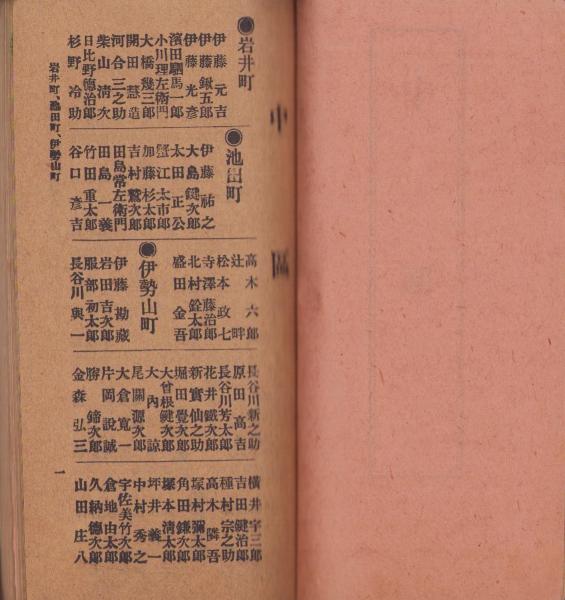 中區
●岩井町
伊藤元吉
伊藤鍬五郎
伊藤光彦
濱田駒馬一郎
小川理左衛門
大橋幾三郎
開田慧造
河合三之助
柴山淸次
日比野德治郎
杉野冷助
●池田町
伊藤祐之
大島鍵次郎
太田正公
蟹江太市郎
加藤杉太郎
吉村鷲次郎
田島常左衛門
田島一義
竹田重太郎
谷口彥吉
高木六郎
辻畔
松本政七
寺澤藤治郎
北村銓太郎
盛田金吾
●伊勢山町
伊藤勘藏
岩田吉次郎
服部初太郎
長谷川與一
長谷川新之助
原田高吉
長谷川芳太郎
花井鐵次郎
新實仙之助
堀田覺次郎
大曾根健次郎
大內諒
尾關源次郎
大倉寬一
片岡說誠
勝鍗次郎
金森弘三
橫井宇三郎
吉田健治郎
種村宗之助
高木隣吾
塚村彌太郎
角田鎌次郎
塚本淸太郎
坪井義一
中村秀之
宇佐美竹次郎
倉地由太郎
久納德次郎
山田庄八
岩井町、池田町、伊勢山町
一